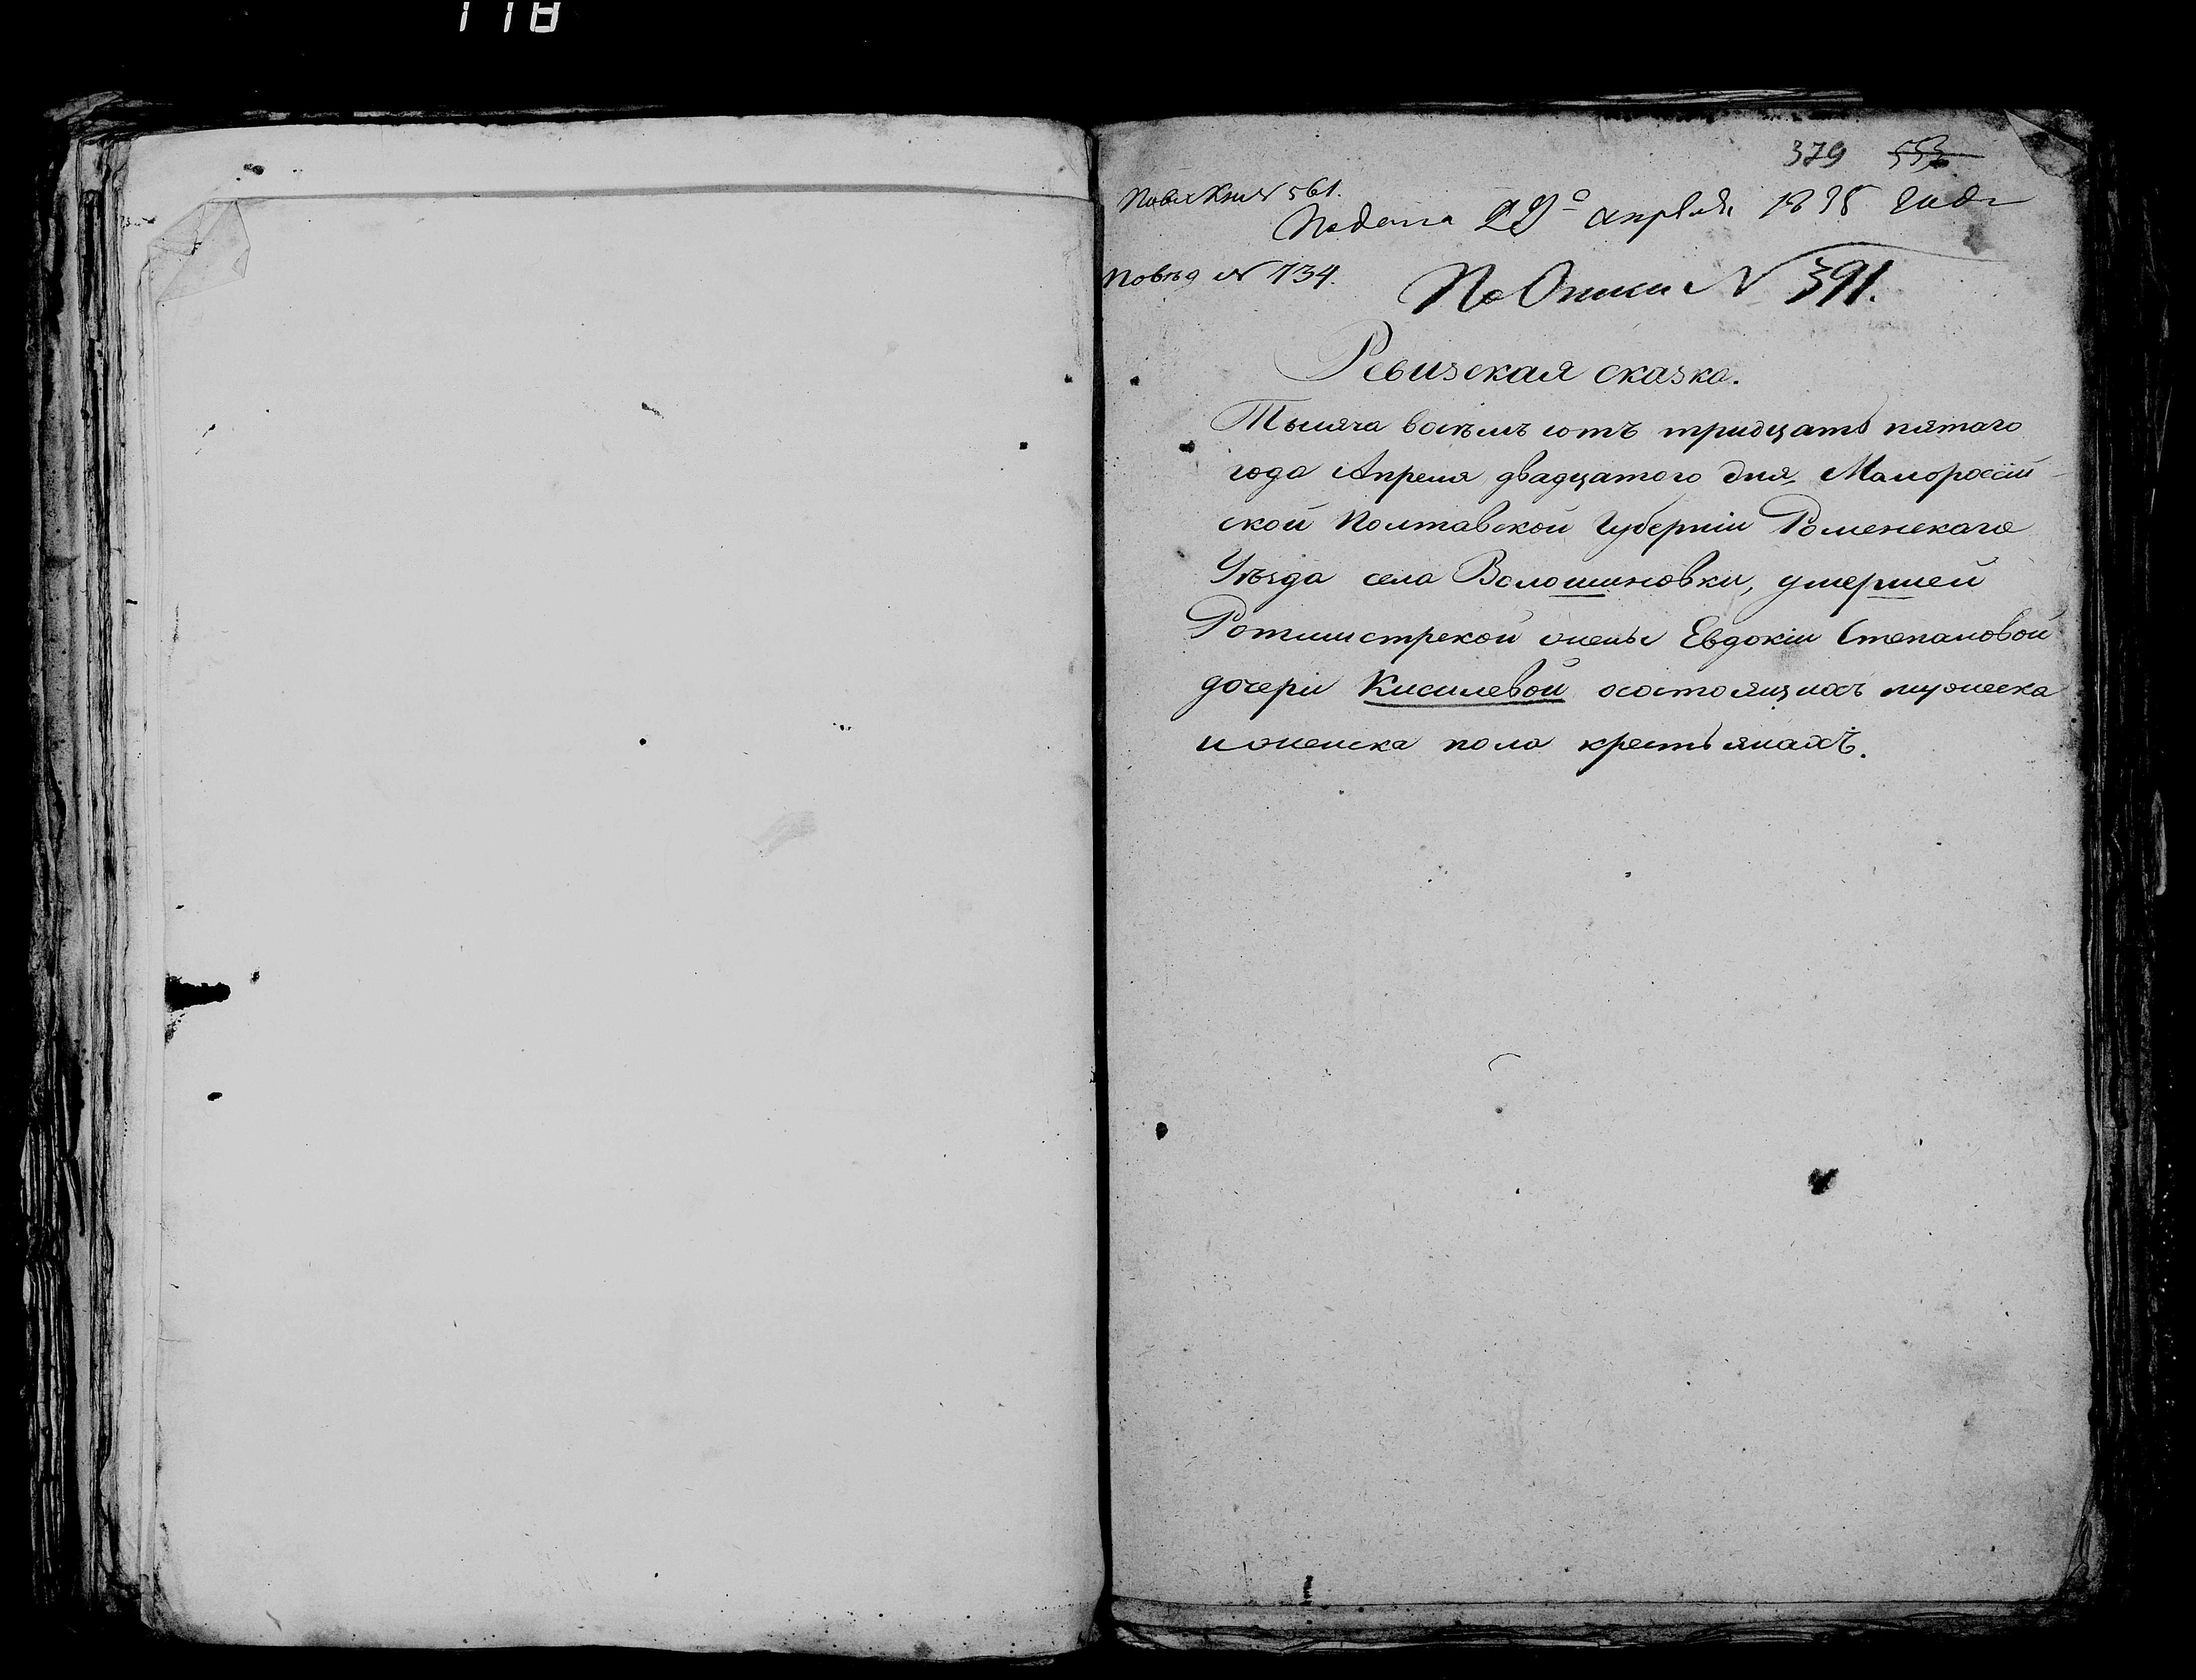 118
379 553
По вх Кни N 561.
Подана 29го апреля 1835 года
По вѣд N 734.
По Описи N 391.
Ревизская сказка.
Тысяча восѣмъ сотъ тридцать пятаго
года Апреля двадцатого дня, Малороссій-
ской Полтавской Губерніи Роменскаго
Уѣзда села Волошиновки, умершей
Ротмистрской жены Евдокіи Степановой
дочери Кисилевой осостоящихъ мужеска
и женска пола крестьянахъ.